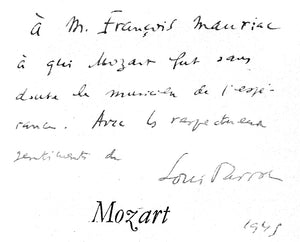 à M. François Mauriac
à qui Mozart fut sans
doute le musicien de l'espé-
rance. Avec les respectueux
sentiments de
Louis Parrot
Mozart
1945